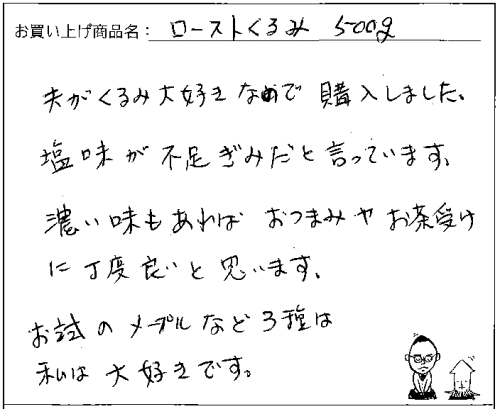 お買い上げ商品名：ローストくるみ 500g
夫がくるみ大好きなので購入しました。
塩味が不足ぎみだと言っています。
濃い味もあれば おつまみやお茶受け
に丁度良いと思います。
お試のメープルなど3種は
私は大好きです。